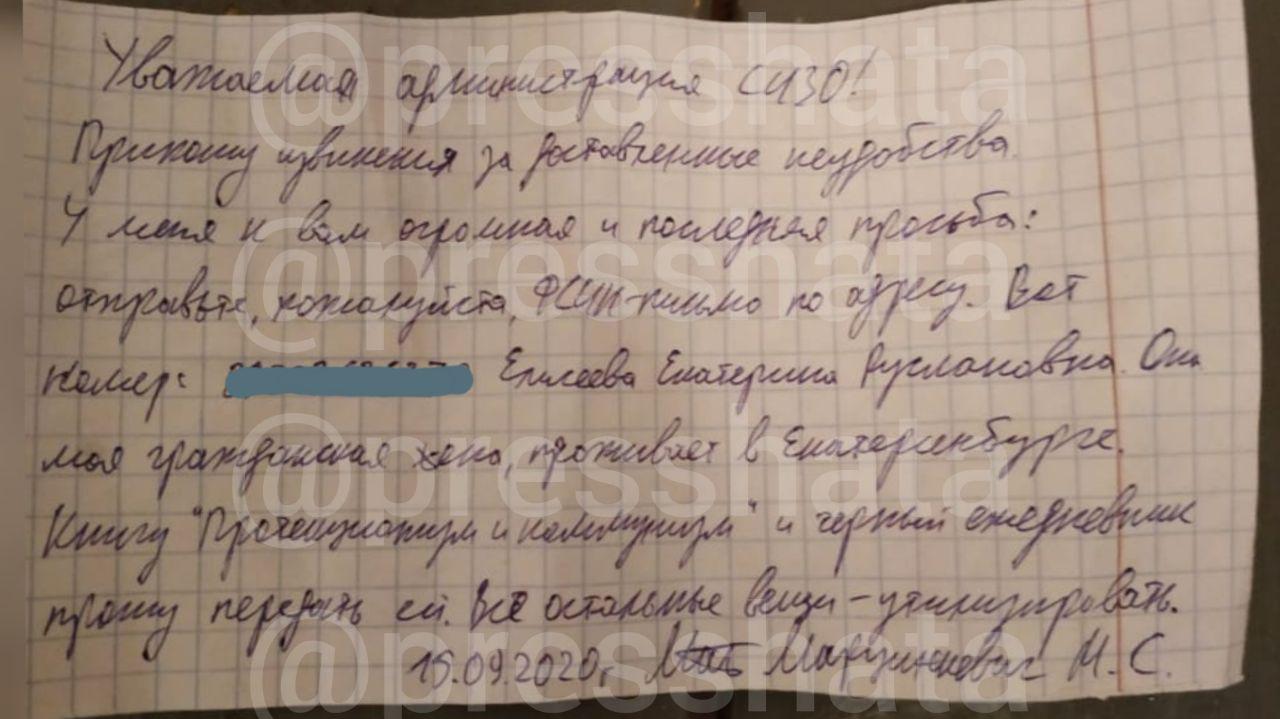 Уважаемая администрация СИЗО!
Приношу извинения за доставленные неудобства.
У меня к вам огромная и последняя просьба:
отправьте, пожалуйста, ФСИН-письмо по адресу. Вот
номер: Елисеева Екатерина Руслановна. Она
моя гражданская жена, проживает в Екатеринбурге.
Книгу "Протекционизм и коммунизм" и черный ежедневник
прошу передать ей. Все остальные вещи - утилизировать.
15.09.2020г. Марцинкевич М.С.
@presshata
@presshata
@presshata
@presshata